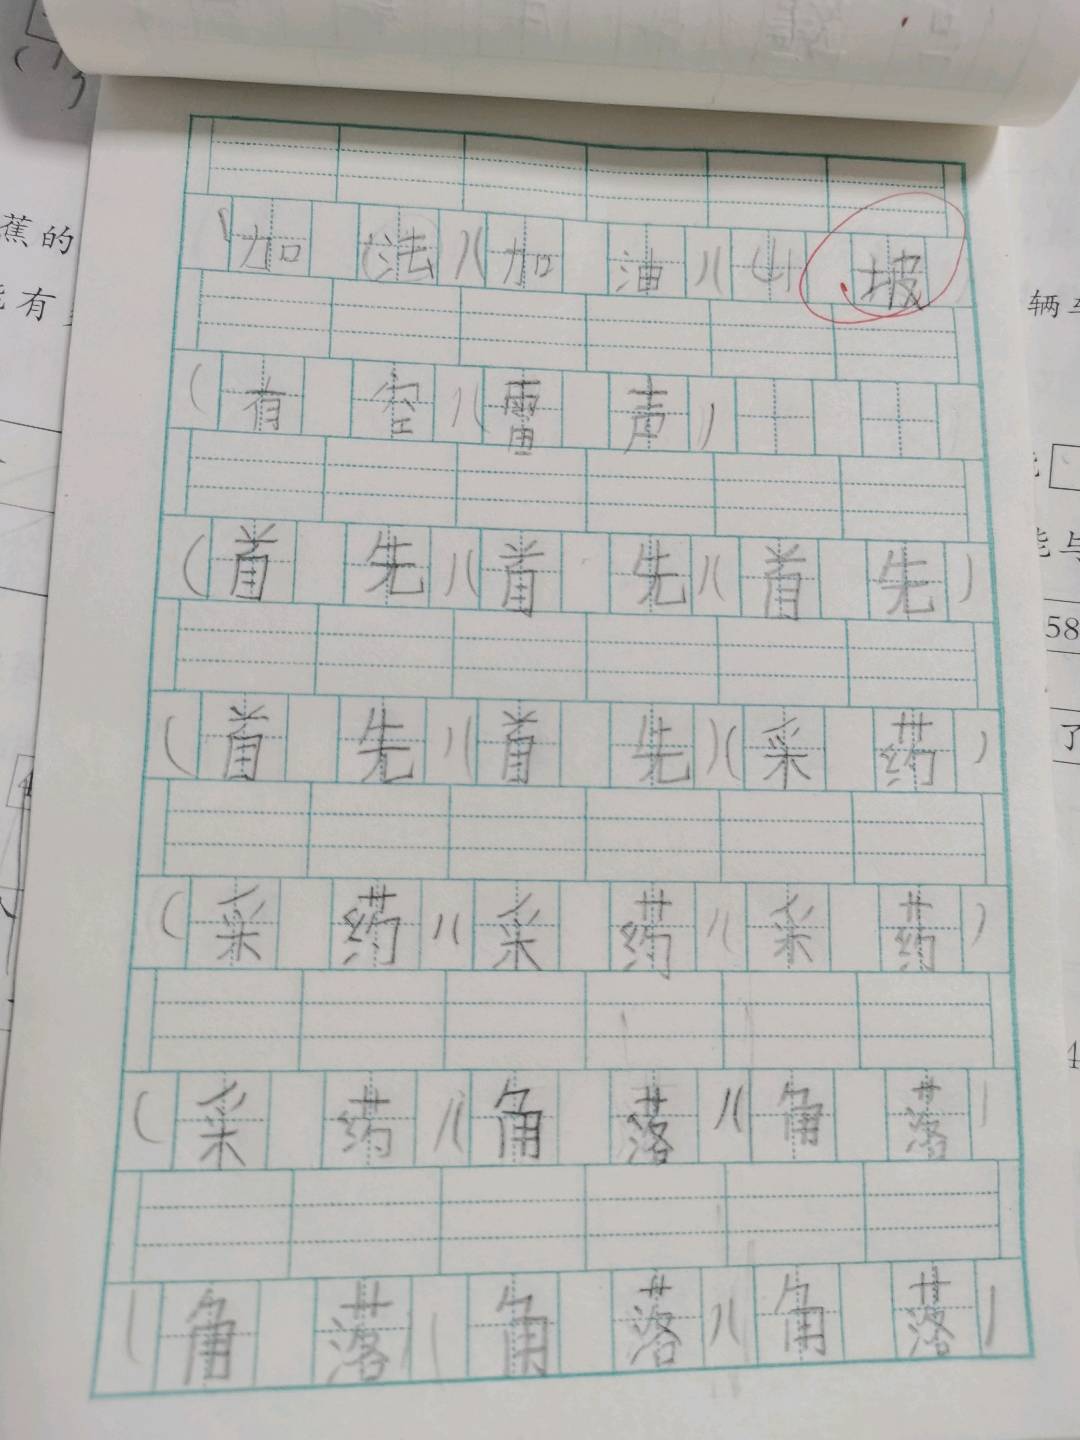 (加法)(加油)(山坡)
(有空)(雷声)
(首先)(首先)(首先)
(首先)(首先)(采药)
(采药)(采药)(采药)
(采药)(角落)(角落)
(角落)(角落)(角落)
蕉的
有
辆
与
58
了
4